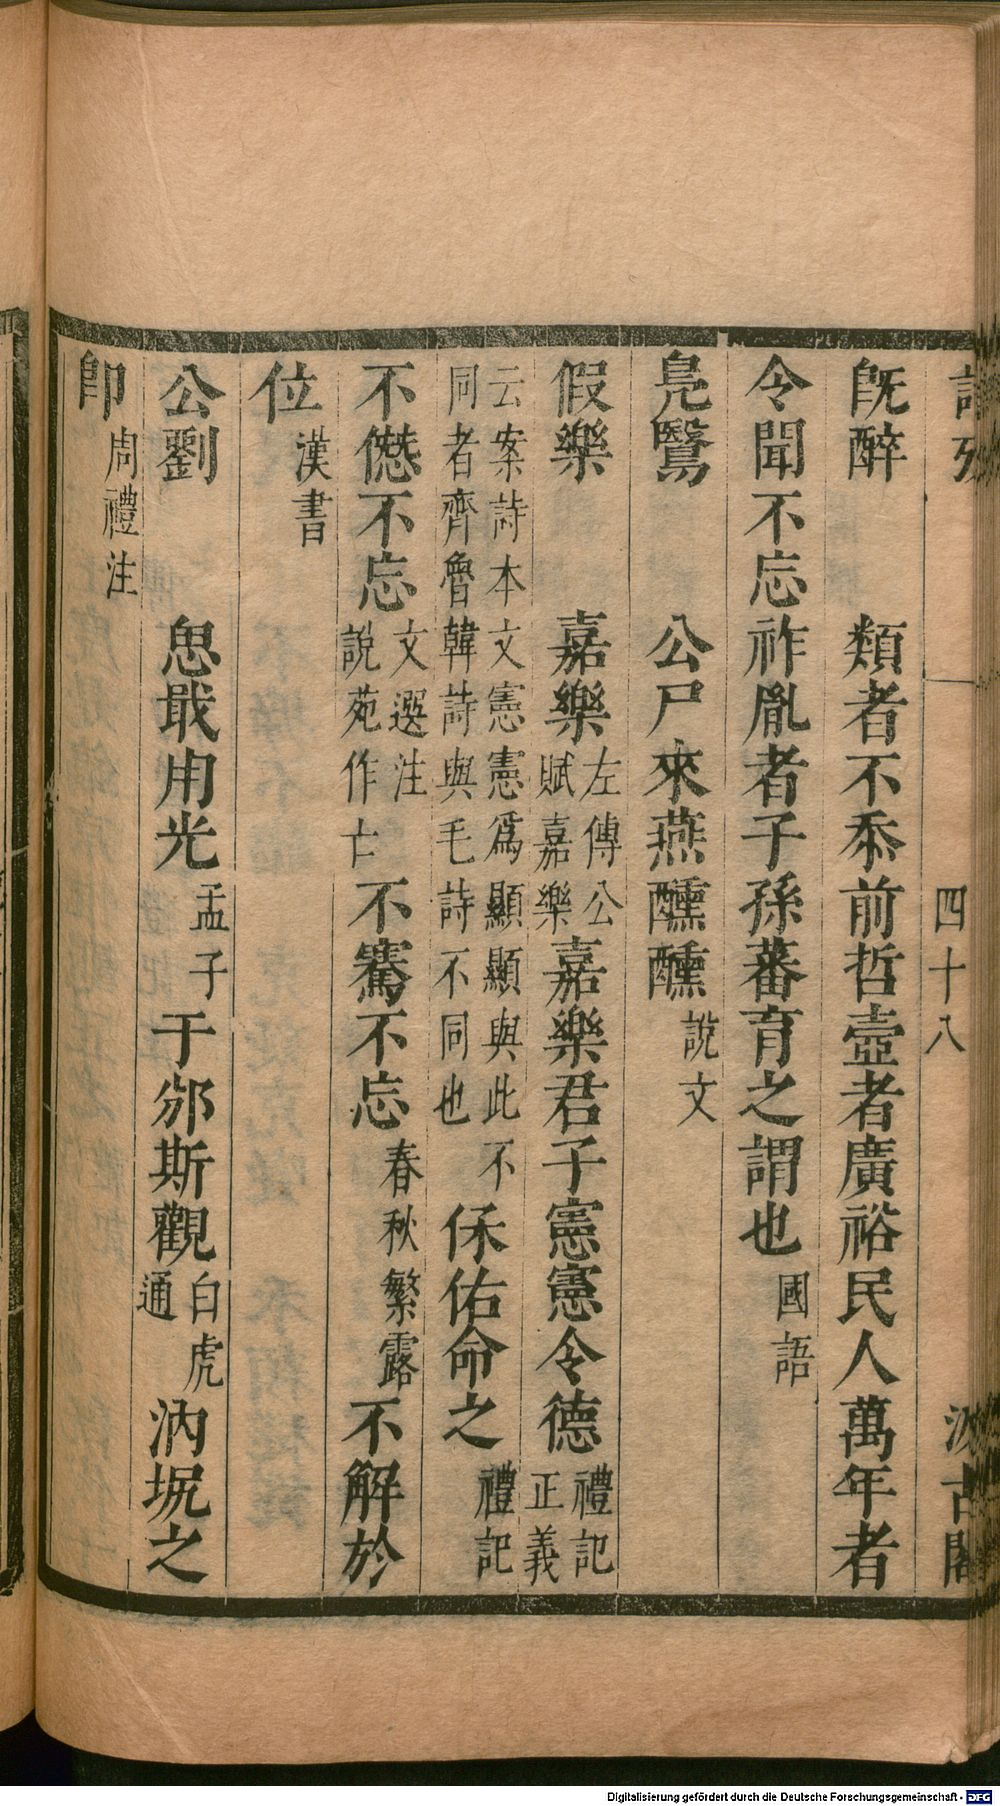 詩攷 四十八 汲古閣
旣醉 類者不忝前哲壼者廣裕民人萬年者
令聞不忘祚胤者子孫蕃育之謂也 國語
鳧鷖 公尸來燕醺醺 說文
假樂 嘉樂 左傳公賦嘉樂 嘉樂君子憲憲令德 禮記正義
云案詩本文憲憲爲顯顯與此不同者齊魯韓詩與毛詩不同也 保佑命之 禮記
不僁不忘 文選注說苑作亡 不騫不忘 春秋繁露 不解於
位 漢書
公劉 思戢用光 孟子 于邠斯觀 白虎通 汭坭之
卽 周禮注
Digitalisierung gefördert durch die Deutsche Forschungsgemeinschaft - DFG